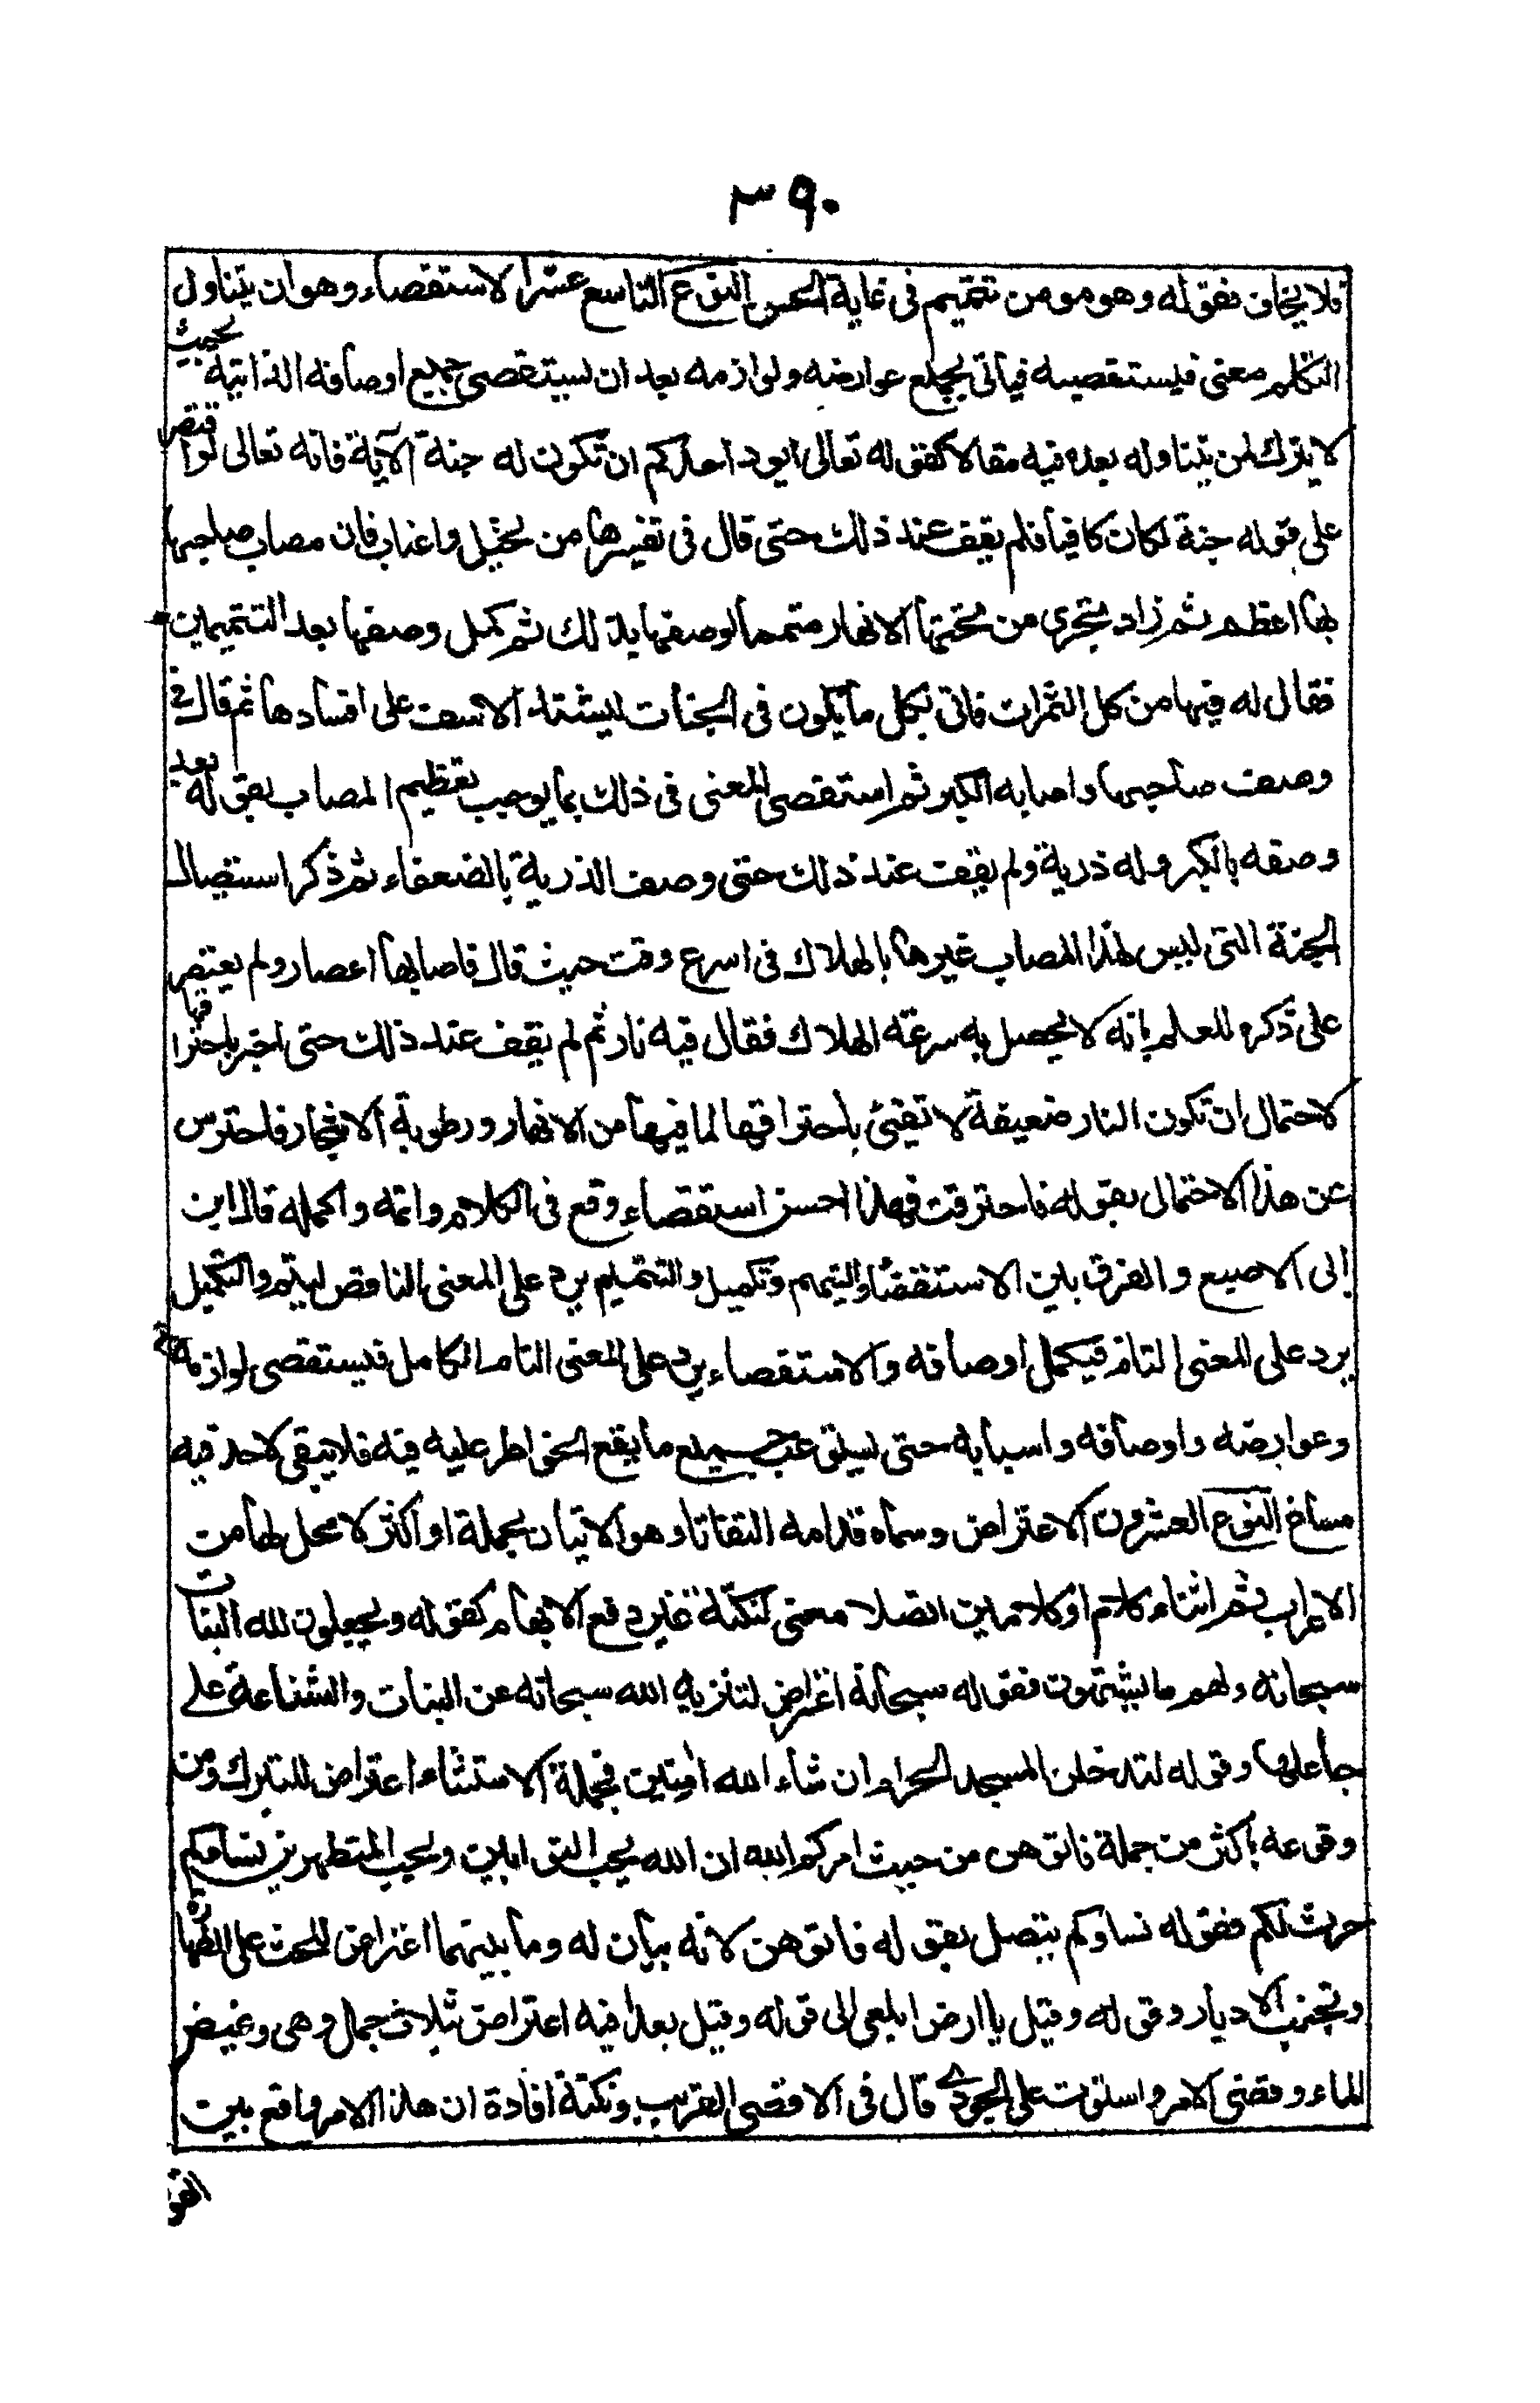 ٣٩٠
فلا يخاف فقوله وهو مومن تتميم فى غاية الحسن النوع التاسع عشر الاستقصاء وهو ان يتناول
التكلم معنى فيستقصيه فيأتى بجميع عوارضه ولوازمه بعد ان يستقصى جميع اوصافه الذاتية بحيث
لا يترك لمن يتناوله بعده فيه مقالا كقوله تعالى ايود احدكم ان تكون له جنة الآية فانه تعالى لو اقتصر
على قوله جنة لكان كافيا فلم يقف عند ذلك حتى قال فى تفسيرها من نخيل واعناب فان مصاب صاحبها
بها اعظم ثم زاد تجرى من تحتها الانهار متمما لوصفها بذلك ثم كمل وصفها بعد التتميمين
فقال له فيها من كل الثمرات فاتى بكل ما يكون فى الجنات ليشتد الاسف على افسادها ثم قال فى
وصف صاحبها واصابه الكبر ثم استقصى المعنى فى ذلك بما يوجب تعظيم المصاب بقوله بعد
وصفه بالكبر وله ذرية ولم يقف عند ذلك حتى وصف الذرية بالضعفاء ثم ذكر استيصال
الجنة التى ليس لهذا المصاب غيرها بالهلاك فى اسرع وقت حيث قال فاصابها اعصار ولم يقتصر
على ذكره للعلم بانه لا يحصل به سرعة الهلاك فقال فيه نار ثم لم يقف عند ذلك حتى اخبر باحتراقها
لاحتمال ان تكون النار ضعيفة لا تفئ باحتراقها لما فيها من الانهار ورطوبة الاشجار فاحترس
عن هذا الاحتمال بقوله فاحترقت فهذا احسن استقصاء وقع فى الكلام واتمه واكمله قال ابن
ابى الاصبع والفرق بين الاستقصا والتتميم وتكميل والتتميم يرد على المعنى الناقص ليتم والتكميل
يرد على المعنى التام فيكمل اوصافه والاستقصاء يرد على المعنى التام الكامل فيستقصى لوازمه
وعوارضه واوصافه واسبابه حتى يستوعب جميع ما يقع الخواطر عليه فيه فلا يبقى لاحد فيه
مساغ النوع العشرون الاعتراض وسماه قدامه التفاتا وهو الاتيان بجملة او اكثر لا محل لها من
الاعراب ثم اثناء كلام او كلامين اتصلا معنى لنكتة غير دفع الابهام كقوله ويجعلون لله البنات
سبحانه ولهم ما يشتهون فقوله سبحانه اعتراض لتنزيه الله سبحانه عن البنات والشناعة على
جاعلها وقوله لتدخلن المسجد الحرام ان شاء الله امنين فجملة الاستثناء اعتراض للتبرك ومن
وقوعه باكثر من جملة فاتوهن من حيث امركم الله ان الله يحب التوابين ويحب المتطهرين نساءكم
حرث لكم فقوله نساوكم يتصل بقوله فاتوهن لانه بيان له وما بينهما اعتراض للحث على الطهارة
وتجنب الادبار وقوله وقيل ياارض ابلعى الى قوله وقيل بعدا فيه اعتراض بثلاث جمل وهى وغيض
الماء وقضى الامر واستوت على الجودى قال فى الاقصى القريب ونكتة افادة ان هذا الامر واقع بين
القو